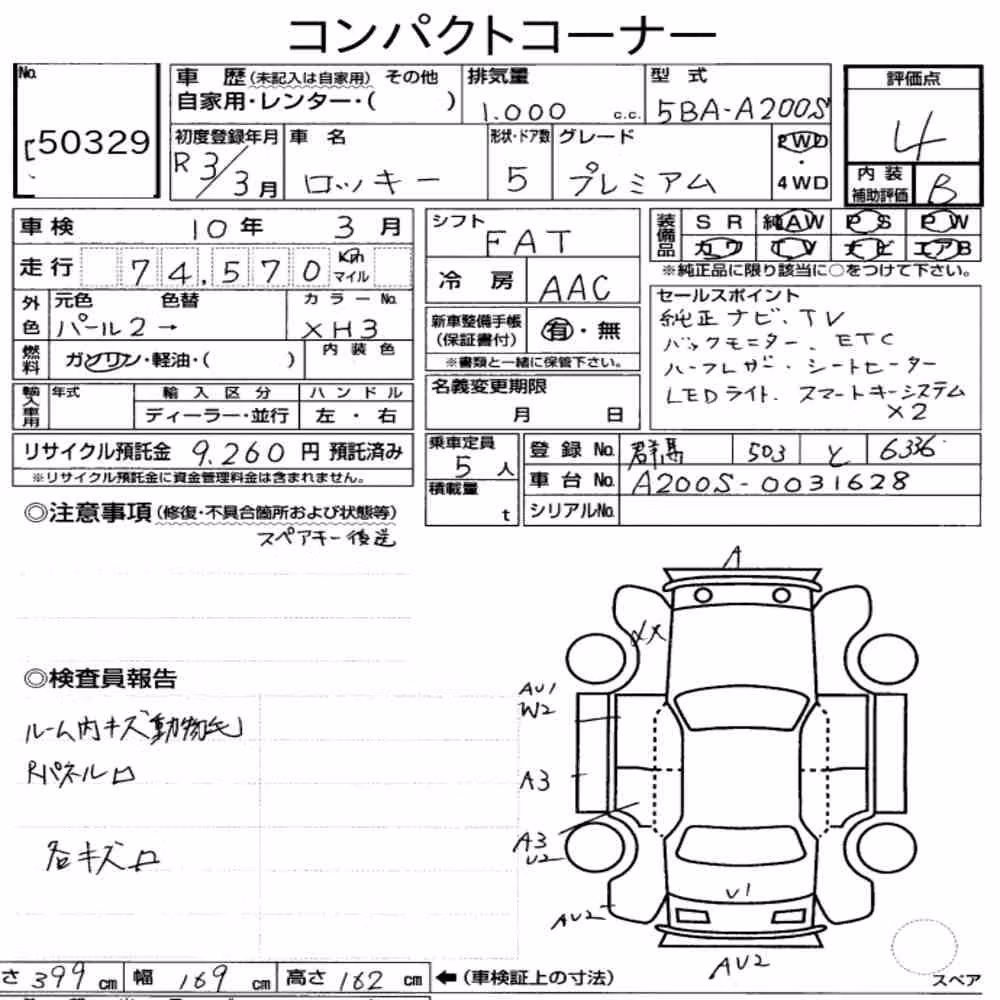 コンパクトコーナー
No. 50329
車歴(未記入は自家用) その他
自家用・レンター・( )
排気量 1.000 c.c.
型式 5BA-A200S
評価点 4
内装補助評価 B
初度登録年月 R3/3月
車名 ロッキー
形状・ドア数 5
グレード プレミアム
2WD・4WD
車検 10年 3月
走行 74,570 Km マイル
外色 元色 色替 パール2→
カラーNo. XH3
燃料 ガソリン・軽油・( )
内装色
輸入車用 年式 輸入区分 ハンドル
ディーラー・並行 左・右
リサイクル預託金 9,260 円 預託済み
※リサイクル預託金に資金管理料金は含まれません。
シフト FAT
冷房 AAC
新車整備手帳(保証書付) 有・無
※書類と一緒に保管下さい。
名義変更期限
月 日
乗車定員 5人
積載量 t
装備品 SR 純AW PS PW
カワ TV ナビ エアB
※純正品に限り該当に○をつけて下さい。
セールスポイント
純正ナビ、TV
バックモニター、ETC
ハーフレザー・シートヒーター
LEDライト、スマートキーシステム
×2
登録No. 群馬 503 と 6336
車台No. A200S-0031628
シリアルNo.
◎注意事項(修復・不具合箇所および状態等)
スペアキー後送
◎検査員報告
ルーム内キズ動物毛
Rパネルロ
各キズロ
A
XX
AU1
W2
A3
A3
U2
U1
AU2
AU2
スペア
さ 399 cm 幅 169 cm 高さ 162 cm ←(車検証上の寸法)